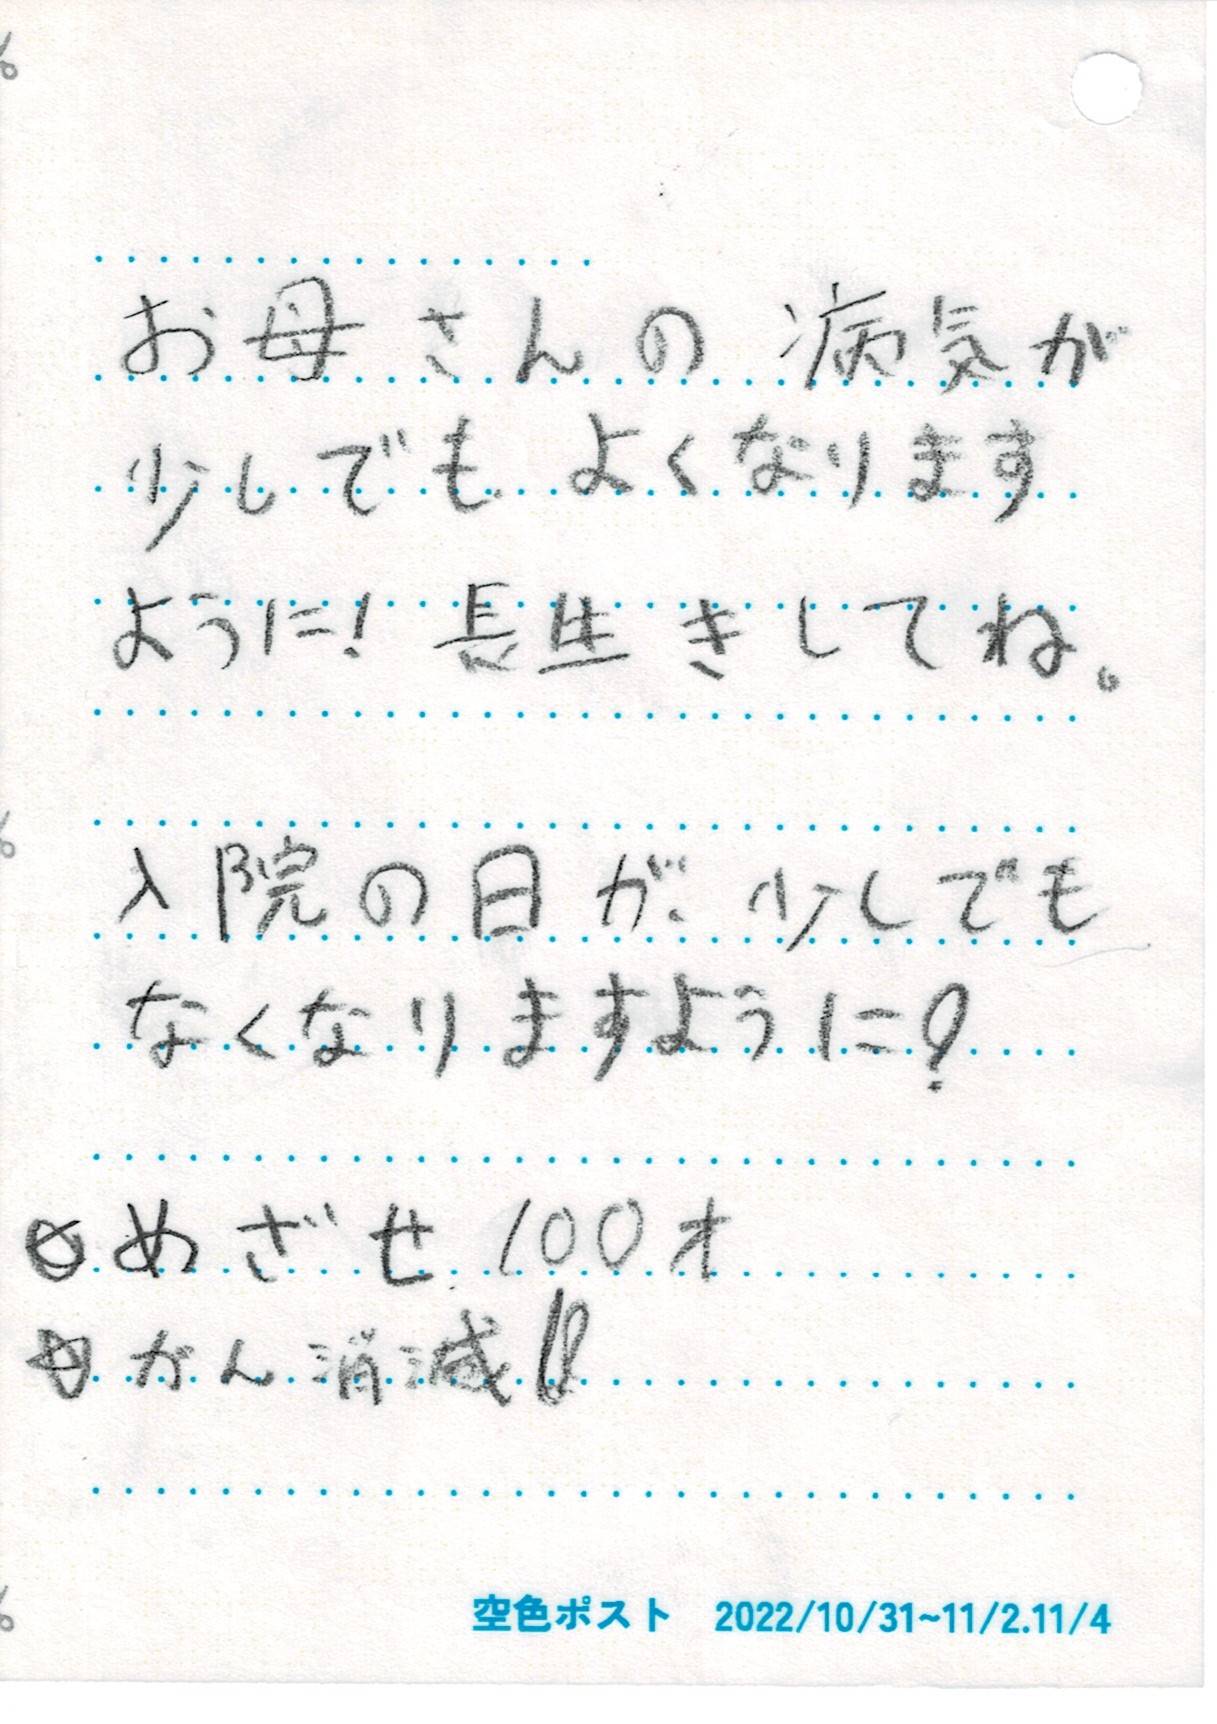 お母さんの病気が
少しでもよくなります
ように!長生きしてね。
入院の日が少しでも
なくなりますように!
☆めざせ100才
☆がん消滅!!
空色ポスト 2022/10/31~11/2.11/4